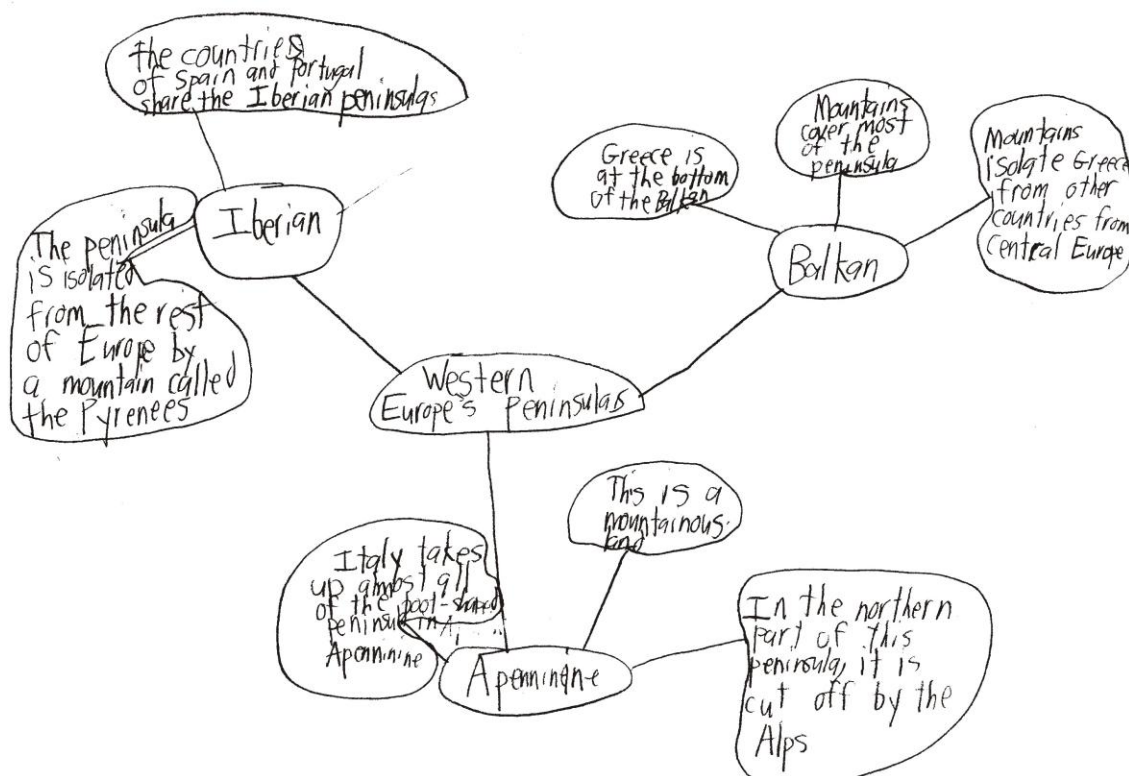 The countries
of Spain and Portugal
share the Iberian peninsulas
Iberian
The peninsula
is isolated
from the rest
of Europe by
a mountain called
the Pyrenees
Greece is
at the bottom
of the Balkan
Mountains
cover most
of the
peninsula
Mountains
isolate Greece
from other
countries from
central Europe
Balkan
Western
Europe's Peninsulas
This is a
mountainous
land
Italy takes
up almost all
of the boot-shaped
peninsula in
Apenninine
Apenninine
In the northern
part of this
peninsula, it is
cut off by the
Alps